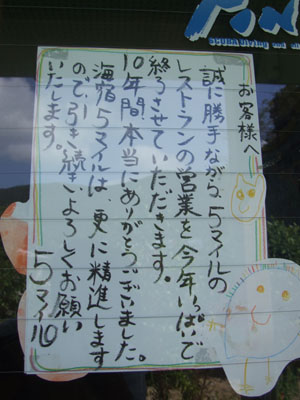 お客様へ
誠に勝手ながら、5マイルの
レストランの営業を今年いっぱいで
終らさせていただきます。
10年間、本当にありがとうございました。
海宿5マイルは、更に精進します
ので、引き続き、よろしくお願い
いたします。
5マイル
SCUBA Diving and